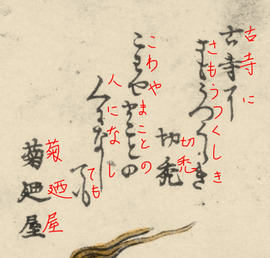 古寺に
さもうつくしき
切禿
こわやまことの
人になし
ても
菊廼屋
古寺に
さもうつくしき
切禿
こわやまことの
人になし
ても
菊廼屋